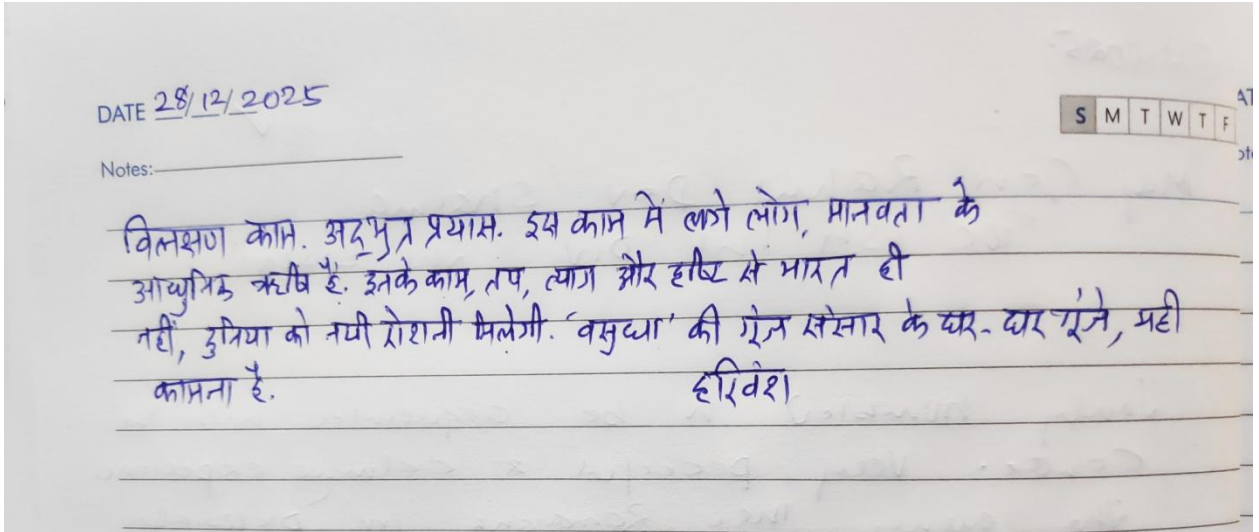 DATE 28/12/2025
S M T W T F
Notes:
विलक्षण काम. अद्भुत प्रयास. इस काम में लगे लोग, मानवता के
आधुनिक ऋषि हैं. इनके काम, तप, त्याग और दृष्टि से भारत ही
नहीं, दुनिया को नयी रोशनी मिलेगी. 'वसुधा' की गूंज संसार के घर-घर गूंजे, यही
कामना है.
हरिवंश